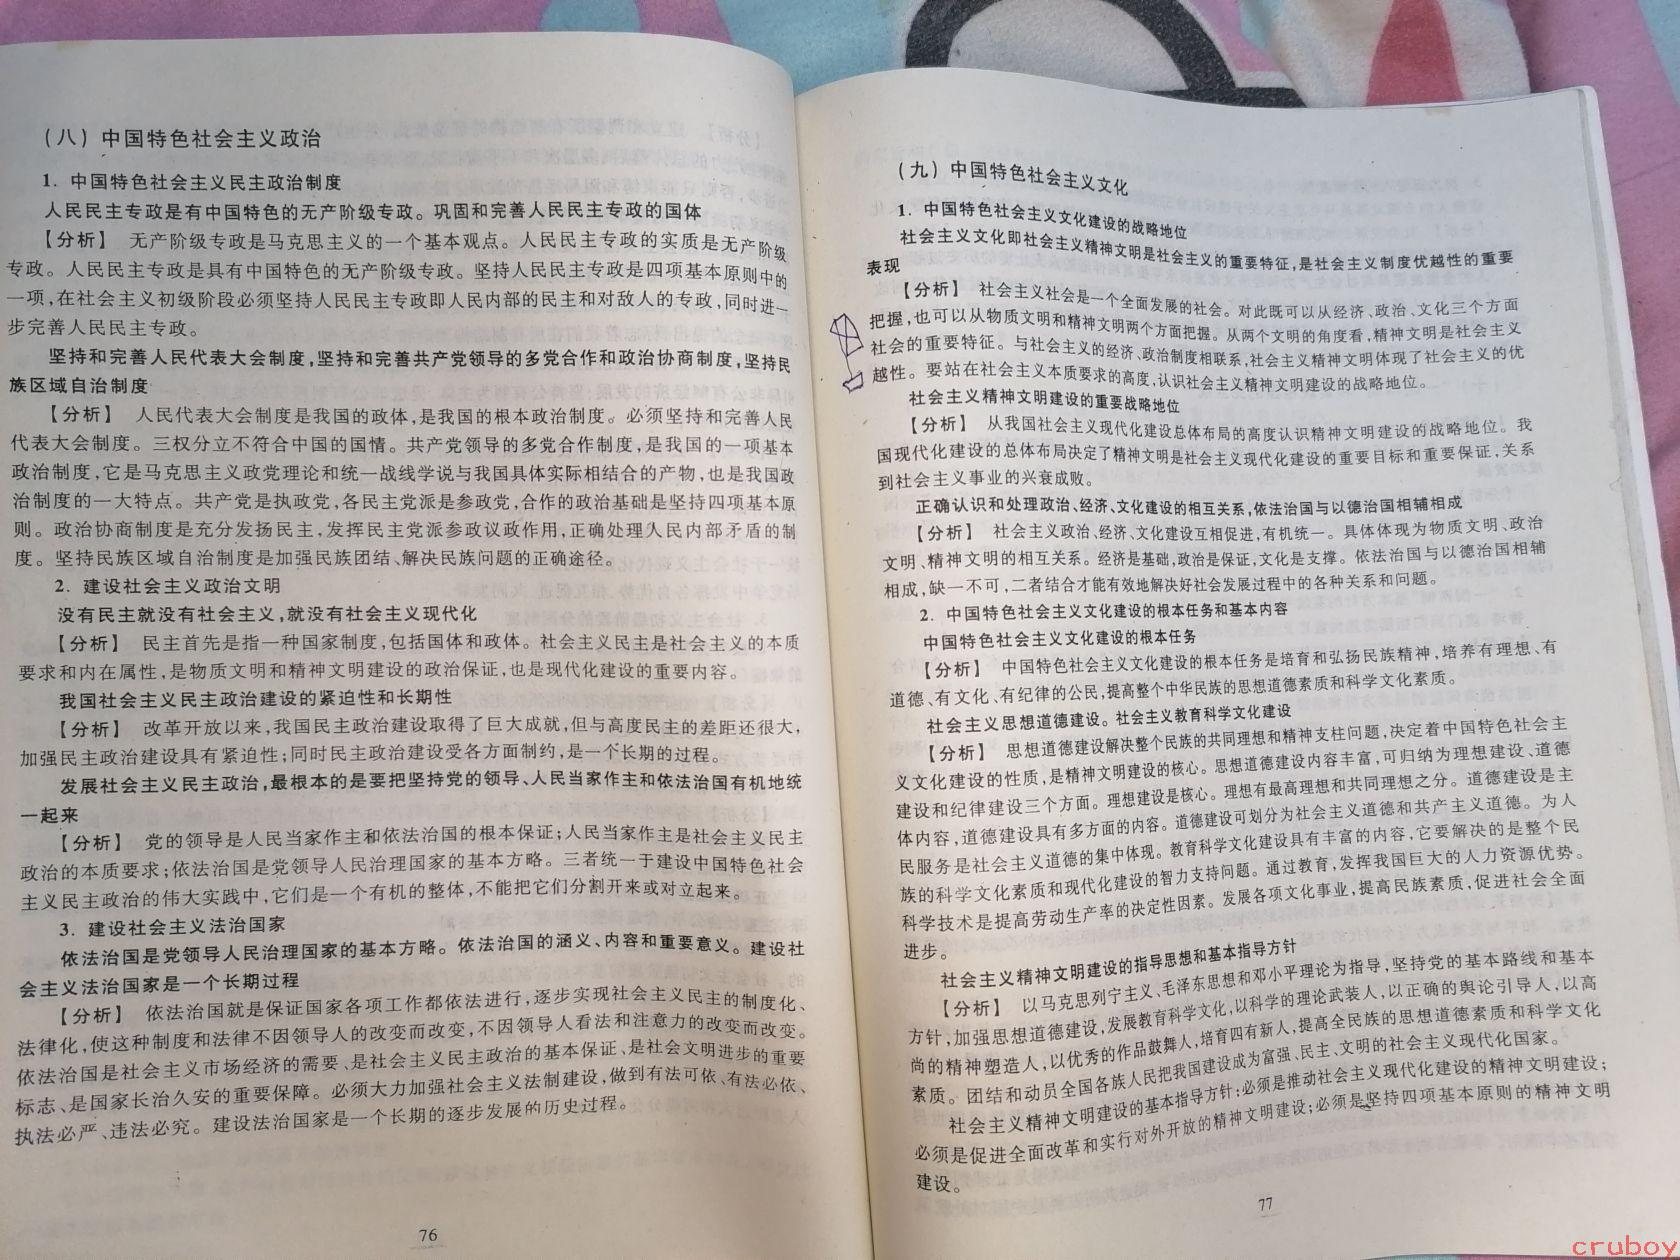 （八）中国特色社会主义政治
1. 中国特色社会主义民主政治制度
人民民主专政是有中国特色的无产阶级专政。巩固和完善人民民主专政的国体
【分析】 无产阶级专政是马克思主义的一个基本观点。人民民主专政的实质是无产阶级
专政。人民民主专政是具有中国特色的无产阶级专政。坚持人民民主专政是四项基本原则中的
一项,在社会主义初级阶段必须坚持人民民主专政即人民内部的民主和对敌人的专政,同时进一
步完善人民民主专政。
坚持和完善人民代表大会制度,坚持和完善共产党领导的多党合作和政治协商制度,坚持民
族区域自治制度
【分析】 人民代表大会制度是我国的政体,是我国的根本政治制度。必须坚持和完善人民
代表大会制度。三权分立不符合中国的国情。共产党领导的多党合作制度,是我国的一项基本
政治制度,它是马克思主义政党理论和统一战线学说与我国具体实际相结合的产物,也是我国政
治制度的一大特点。共产党是执政党,各民主党派是参政党,合作的政治基础是坚持四项基本原
则。政治协商制度是充分发扬民主,发挥民主党派参政议政作用,正确处理人民内部矛盾的制
度。坚持民族区域自治制度是加强民族团结、解决民族问题的正确途径。
2. 建设社会主义政治文明
没有民主就没有社会主义,就没有社会主义现代化
【分析】 民主首先是指一种国家制度,包括国体和政体。社会主义民主是社会主义的本质
要求和内在属性,是物质文明和精神文明建设的政治保证,也是现代化建设的重要内容。
我国社会主义民主政治建设的紧迫性和长期性
【分析】 改革开放以来,我国民主政治建设取得了巨大成就,但与高度民主的差距还很大,
加强民主政治建设具有紧迫性;同时民主政治建设受各方面制约,是一个长期的过程。
发展社会主义民主政治,最根本的是要把坚持党的领导、人民当家作主和依法治国有机地统
一起来
【分析】 党的领导是人民当家作主和依法治国的根本保证;人民当家作主是社会主义民主
政治的本质要求;依法治国是党领导人民治理国家的基本方略。三者统一于建设中国特色社会
主义民主政治的伟大实践中,它们是一个有机的整体,不能把它们分割开来或对立起来。
3. 建设社会主义法治国家
依法治国是党领导人民治理国家的基本方略。依法治国的涵义、内容和重要意义。建设社
会主义法治国家是一个长期过程
【分析】 依法治国就是保证国家各项工作都依法进行,逐步实现社会主义民主的制度化、
法律化,使这种制度和法律不因领导人的改变而改变,不因领导人看法和注意力的改变而改变。
依法治国是社会主义市场经济的需要、是社会主义民主政治的基本保证、是社会文明进步的重要
标志、是国家长治久安的重要保障。必须大力加强社会主义法制建设,做到有法可依、有法必依、
执法必严、违法必究。建设法治国家是一个长期的逐步发展的历史过程。
76
（九）中国特色社会主义文化
1. 中国特色社会主义文化建设的战略地位
社会主义文化即社会主义精神文明是社会主义的重要特征,是社会主义制度优越性的重要
表现
【分析】 社会主义社会是一个全面发展的社会。对此既可以从经济、政治、文化三个方面
把握,也可以从物质文明和精神文明两个方面把握。从两个文明的角度看,精神文明是社会主义
社会的重要特征。与社会主义的经济、政治制度相联系,社会主义精神文明体现了社会主义的优
越性。要站在社会主义本质要求的高度,认识社会主义精神文明建设的战略地位。
社会主义精神文明建设的重要战略地位
【分析】 从我国社会主义现代化建设总体布局的高度认识精神文明建设的战略地位。我
国现代化建设的总体布局决定了精神文明是社会主义现代化建设的重要目标和重要保证,关系
到社会主义事业的兴衰成败。
正确认识和处理政治、经济、文化建设的相互关系,依法治国与以德治国相辅相成
【分析】 社会主义政治、经济、文化建设互相促进,有机统一。具体体现为物质文明、政治
文明、精神文明的相互关系。经济是基础,政治是保证,文化是支撑。依法治国与以德治国相辅
相成,缺一不可,二者结合才能有效地解决好社会发展过程中的各种关系和问题。
2. 中国特色社会主义文化建设的根本任务和基本内容
中国特色社会主义文化建设的根本任务
【分析】 中国特色社会主义文化建设的根本任务是培育和弘扬民族精神,培养有理想、有
道德、有文化、有纪律的公民,提高整个中华民族的思想道德素质和科学文化素质。
社会主义思想道德建设。社会主义教育科学文化建设
【分析】 思想道德建设解决整个民族的共同理想和精神支柱问题,决定着中国特色社会主
义文化建设的性质,是精神文明建设的核心。思想道德建设内容丰富,可归纳为理想建设、道德
建设和纪律建设三个方面。理想建设是核心。理想有最高理想和共同理想之分。道德建设是主
体内容,道德建设具有多方面的内容。道德建设可划分为社会主义道德和共产主义道德。为人
民服务是社会主义道德的集中体现。教育科学文化建设具有丰富的内容,它要解决的是整个民
族的科学文化素质和现代化建设的智力支持问题。通过教育,发挥我国巨大的人力资源优势。
科学技术是提高劳动生产率的决定性因素。发展各项文化事业,提高民族素质,促进社会全面
进步。
社会主义精神文明建设的指导思想和基本指导方针
【分析】 以马克思列宁主义、毛泽东思想和邓小平理论为指导,坚持党的基本路线和基本
方针,加强思想道德建设,发展教育科学文化,以科学的理论武装人,以正确的舆论引导人,以高
尚的精神塑造人,以优秀的作品鼓舞人,培育四有新人,提高全民族的思想道德素质和科学文化
素质。团结和动员全国各族人民把我国建设成为富强、民主、文明的社会主义现代化国家。
社会主义精神文明建设的基本指导方针:必须是推动社会主义现代化建设的精神文明建设;
必须是促进全面改革和实行对外开放的精神文明建设;必须是坚持四项基本原则的精神文明
建设。
77
cruboy